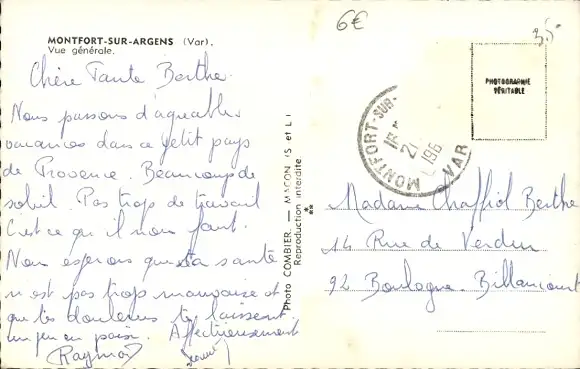 6€
35-
MONTFORT-SUR-ARGENS (Var).
Vue générale.
Chère Tante Berthe
Nous passons d'agreables
vacances dans ce petit pays
de Provence. Beaucoup de
soleil. Pas trop de travail
C'est ce qu'il nous faut.
Nous esperons que ta santé
n'est pas trop mauvaise et
que tes douleurs te laissent
un peu en paix. Affectueusement
Photo COMBIER. — MACON (S et L)
Reproduction interdite
PHOTOGRAPHIE
VÉRITABLE
MONTFORT-SUR-
VAR
21
196
Madame Chaffiol Berthe
14 Rue de Verdun
92 Boulogne-Billancourt